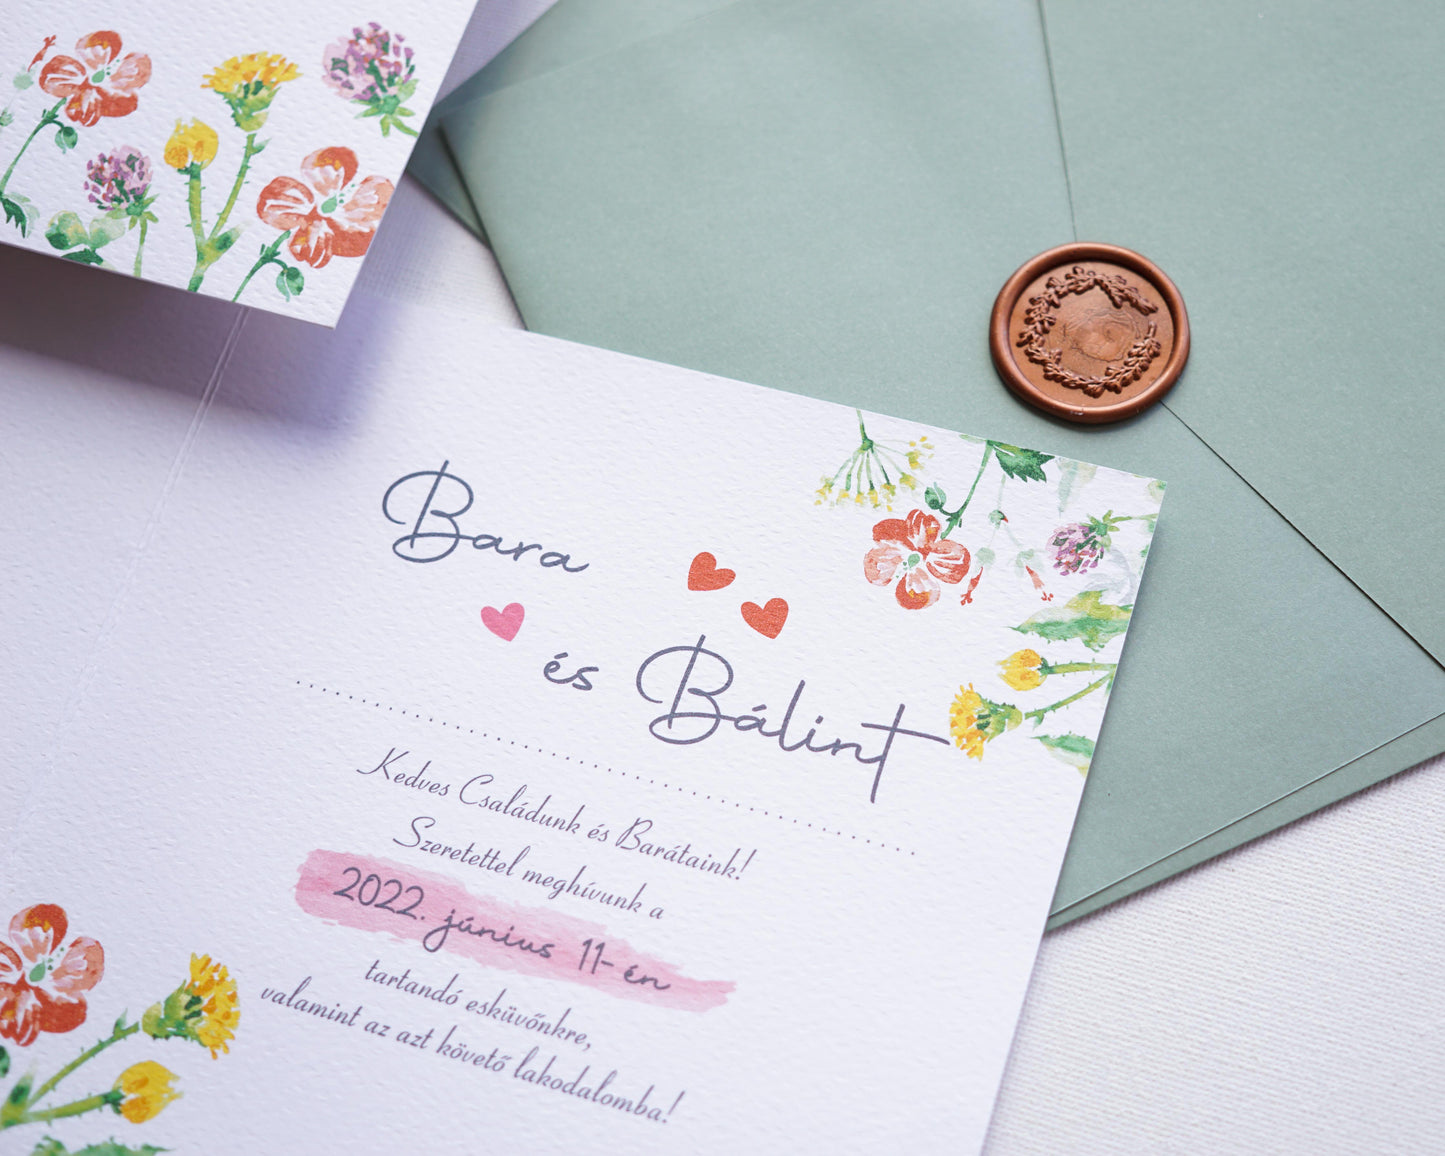 Bara
és Bálint
Kedves Családunk és Barátaink!
Szeretettel meghívunk a
2022. június 11-én
tartandó esküvőnkre,
valamint az azt követő lakodalomba!